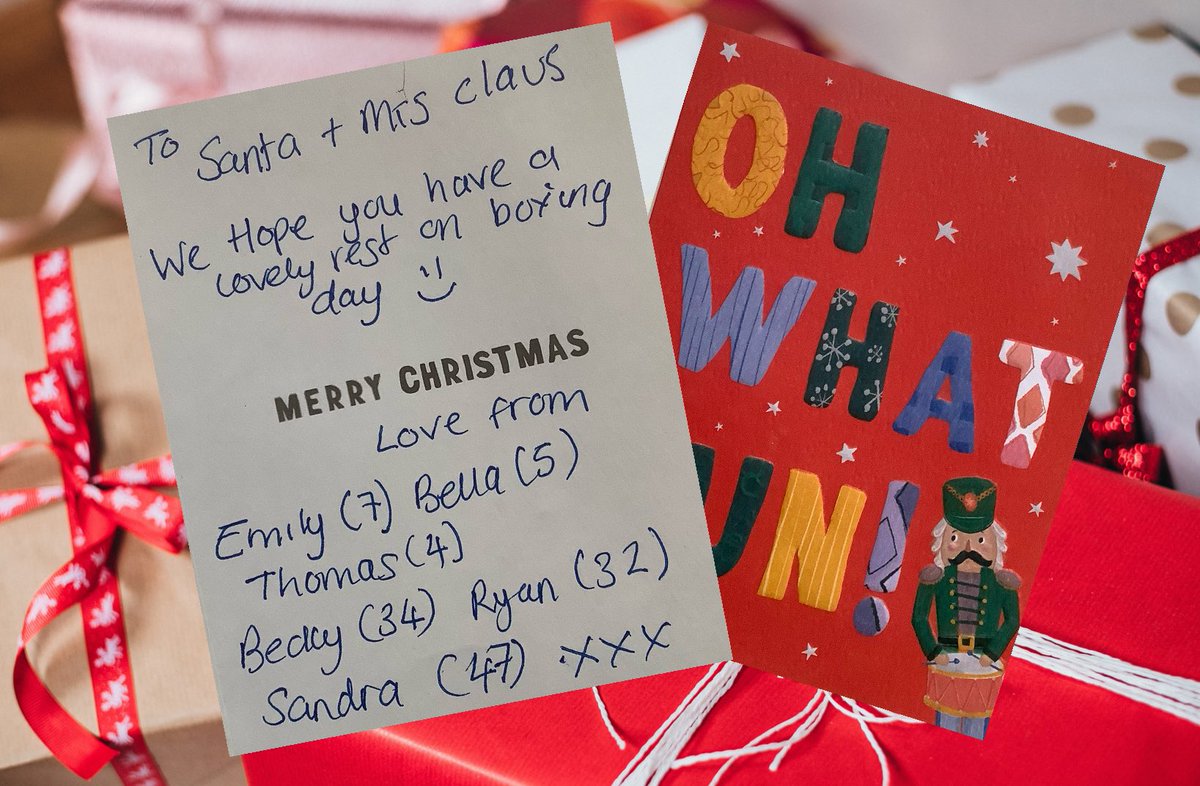 To Santa + Mrs Claus
We Hope you have a
lovely rest on boxing
day :)
MERRY CHRISTMAS
Love from
Emily (7) Bella (5)
Thomas (4)
Becky (34) Ryan (32)
Sandra (47) xxx
OH
WHAT
UN!